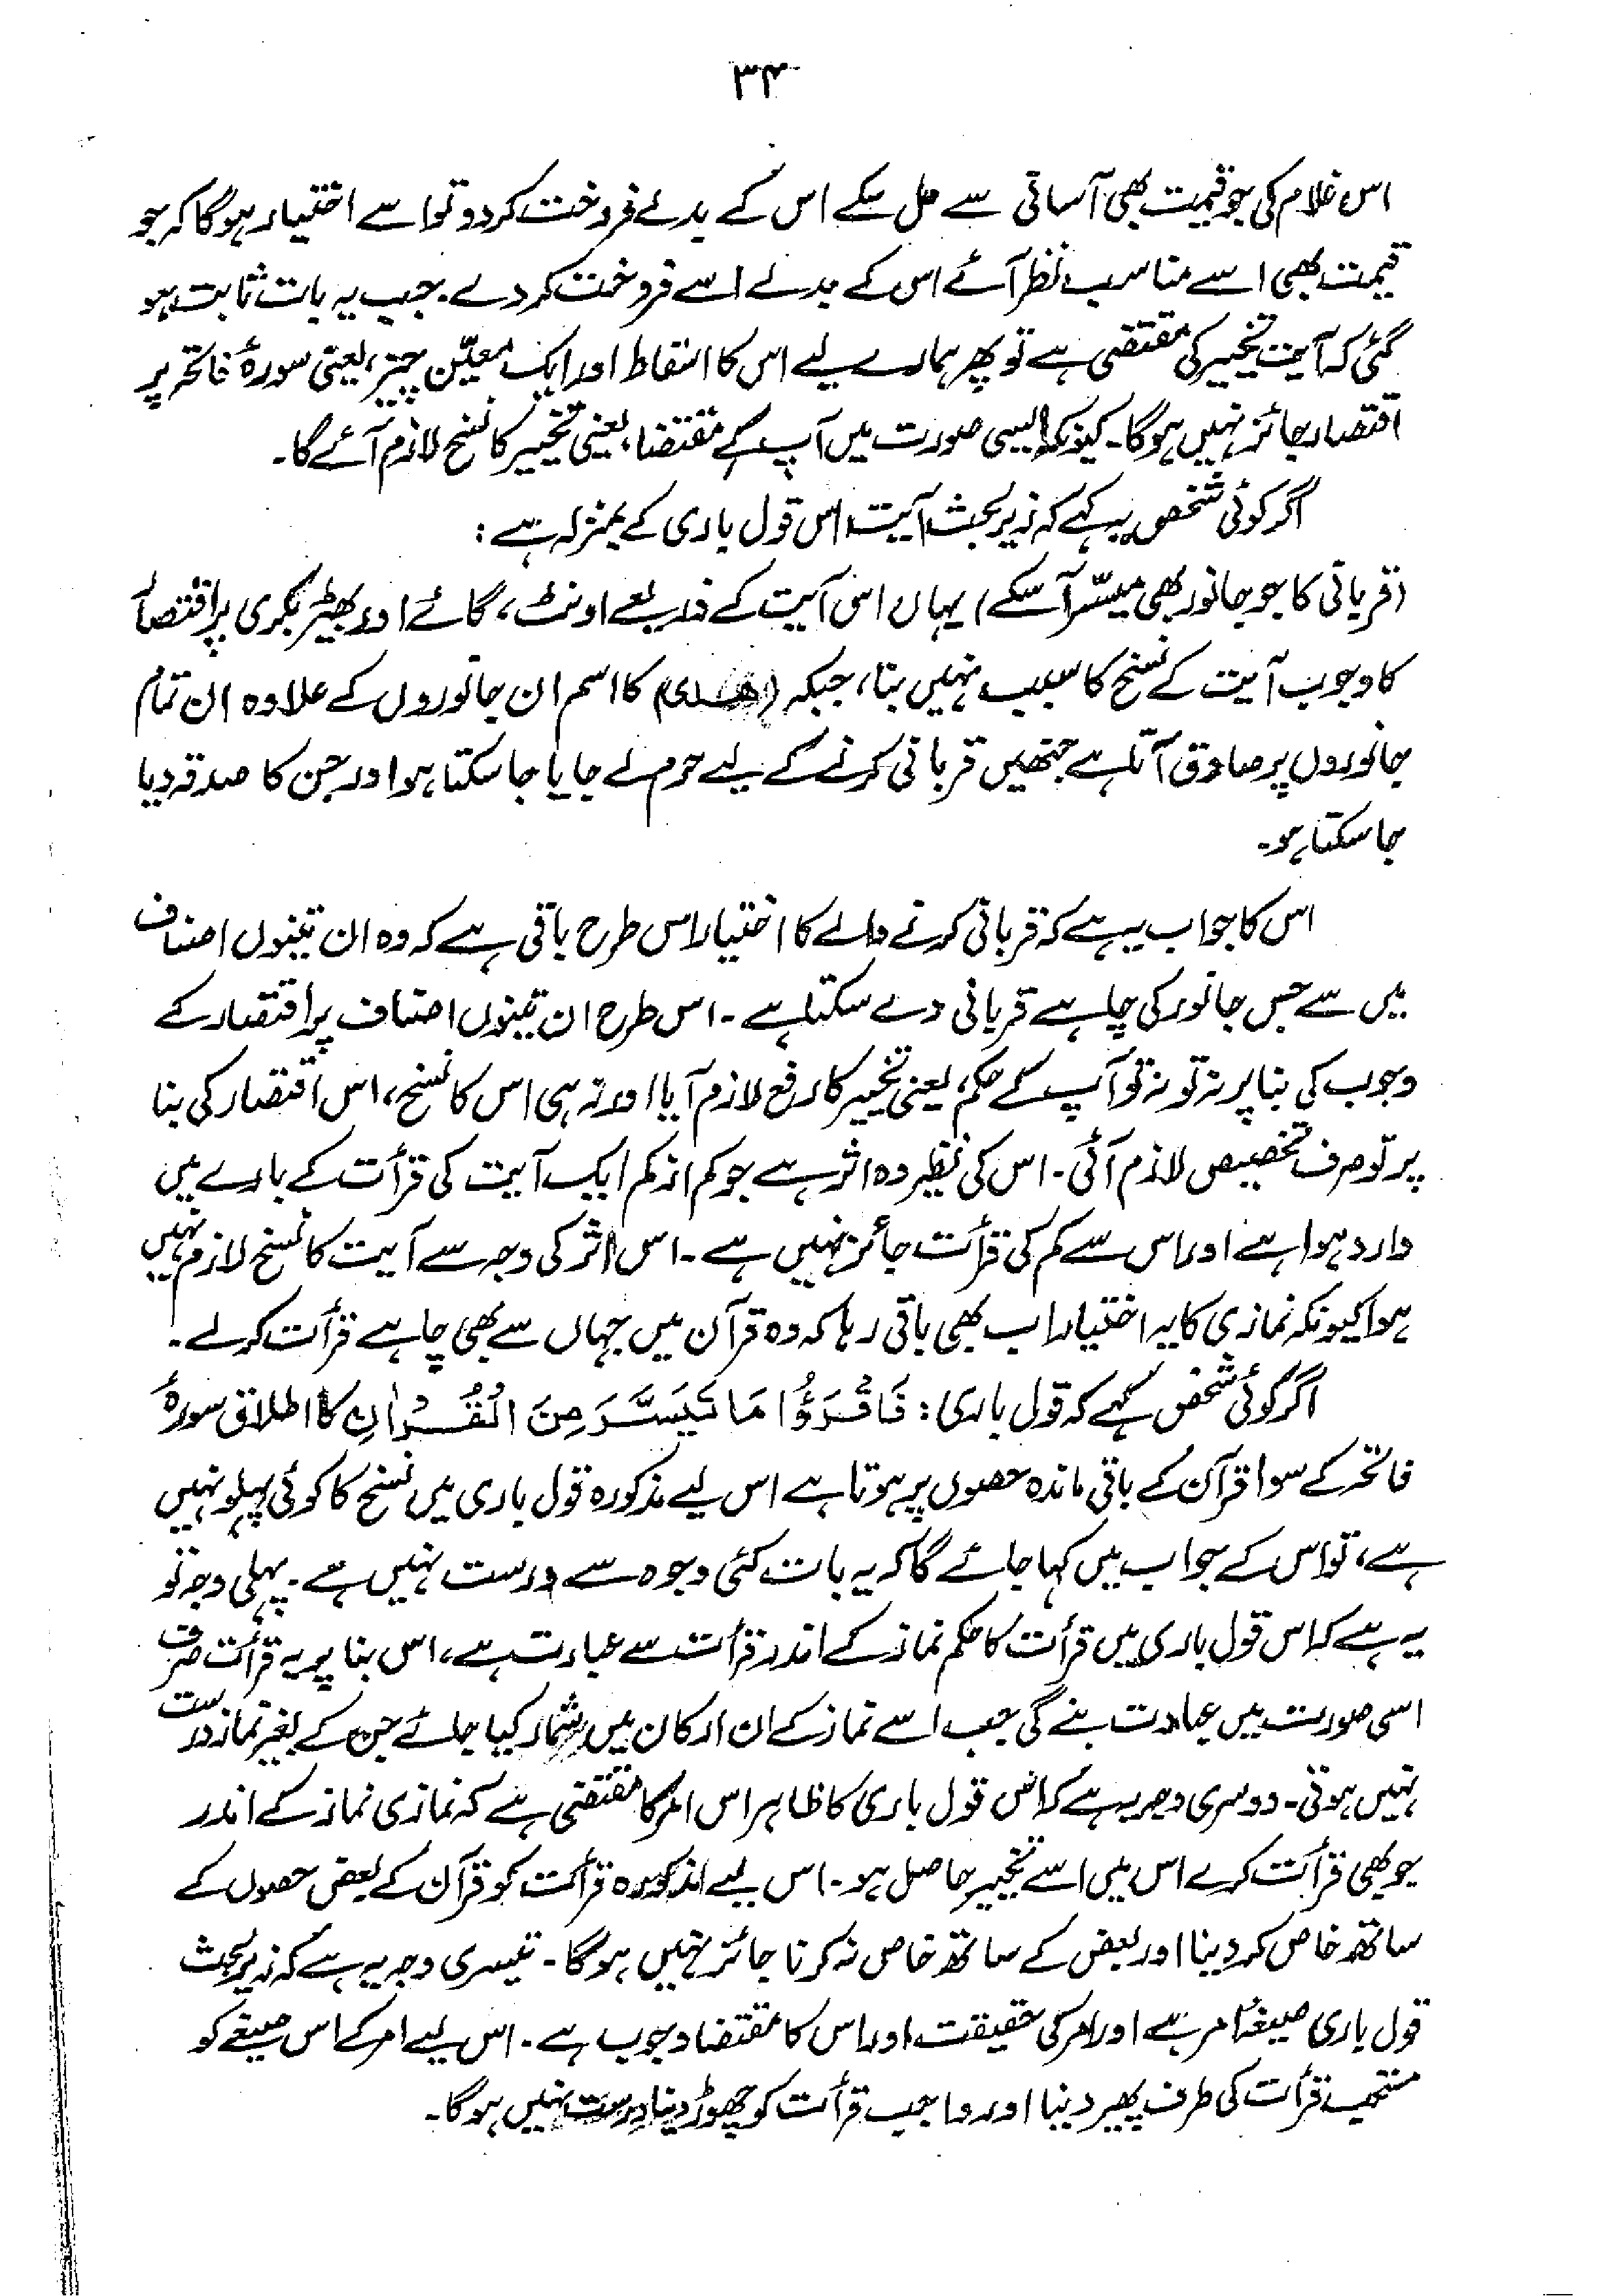 ۳۴
اس غلام کی جو قیمت بھی آسانی سے مل سکے اس کے بدلے فروخت کر دو تو اسے اختیار ہوگا کہ جو
قیمت بھی اسے مناسب نظر آئے اس کے بدلے اسے فروخت کر دے۔ جب یہ بات ثابت ہو
گئی کہ آیت تخییر کی مقتضی ہے تو پھر ہمارے لیے اس کا اسقاط اور ایک معیّن چیز، یعنی سورۂ فاتحہ پر
اقتصار جائز نہیں ہوگا۔ کیونکہ ایسی صورت میں آپ کے مقتضا، یعنی تخییر کا نسخ لازم آئے گا۔
اگر کوئی شخص یہ کہے کہ زیر بحث آیت اس قول باری کے بمنزلہ ہے :
(قربانی کا جو جانور بھی میسّر آسکے) یہاں اس آیت کے ذریعے اونٹ، گائے اور بھیڑ بکری پر اقتصار
کا وجوب آیت کے نسخ کا سبب نہیں بنا، جبکہ (ھدی) کا اسم ان جانوروں کے علاوہ ان تمام
جانوروں پر صادق آتا ہے جنھیں قربانی کرنے کے لیے حرم لے جایا جا سکتا ہو اور جن کا صدقہ دیا
جا سکتا ہو۔
اس کا جواب یہ ہے کہ قربانی کرنے والے کا اختیار اس طرح باقی ہے کہ وہ ان تینوں اصناف
میں سے جس جانور کی چاہے قربانی دے سکتا ہے۔ اس طرح ان تینوں اصناف پر اقتصار کے
وجوب کی بنا پر نہ تو نہ تو آپ کے حکم، یعنی تخییر کا رفع لازم آیا اور نہ ہی اس کا نسخ، اس اقتصار کی بنا
پر تو صرف تخصیص لازم آئی۔ اس کی نظیر وہ اثر ہے جو کم از کم ایک آیت کی قرأت کے بارے میں
وارد ہوا ہے اور اس سے کم کی قرأت جائز نہیں ہے۔ اس اثر کی وجہ سے آیت کا نسخ لازم نہیں
ہوا کیونکہ نمازی کا یہ اختیار اب بھی باقی رہا کہ وہ قرآن میں جہاں سے بھی چاہے قرأت کر لے۔
اگر کوئی شخص کہے کہ قول باری : فَاقْرَؤُا مَا تَیَسَّرَ مِنَ الْقُرْاٰنِ کا اطلاق سورۂ
فاتحہ کے سوا قرآن کے باقی ماندہ حصوں پر ہوتا ہے اس لیے مذکورہ قول باری میں نسخ کا کوئی پہلو نہیں
ہے، تو اس کے جواب میں کہا جائے گا کہ یہ بات کئی وجوہ سے درست نہیں ہے۔ پہلی وجہ تو
یہ ہے کہ اس قول باری میں قرأت کا حکم نماز کے اندر قرأت سے عبارت ہے، اس بنا پر یہ قرأت صرف
اسی صورت میں عبادت بنے گی جب اسے نماز کے ان ارکان میں شمار کیا جائے جن کے بغیر نماز درست
نہیں ہوتی۔ دوسری وجہ یہ ہے کہ اس قول باری کا ظاہر اس امر کا مقتضی ہے کہ نمازی نماز کے اندر
جو بھی قرأت کرے اس میں اسے تخییر حاصل ہو۔ اس لیے مذکورہ قرأت کو قرآن کے بعض حصوں کے
ساتھ خاص کر دینا اور بعض کے ساتھ خاص نہ کرنا جائز نہیں ہوگا۔ تیسری وجہ یہ ہے کہ زیر بحث
قول باری صیغۂ امر ہے اور امر کی حقیقت اور اس کا مقتضا وجوب ہے۔ اس لیے امر کے اس صیغے کو
مستحب قرأت کی طرف پھیر دینا اور واجب قرأت کو چھوڑ دینا درست نہیں ہوگا۔